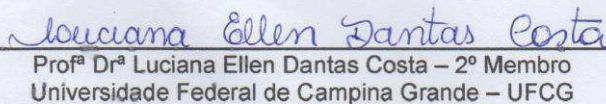 Louciana Ellen Dantas Costa
Profª Drª Luciana Ellen Dantas Costa – 2º Membro
Universidade Federal de Campina Grande – UFCG